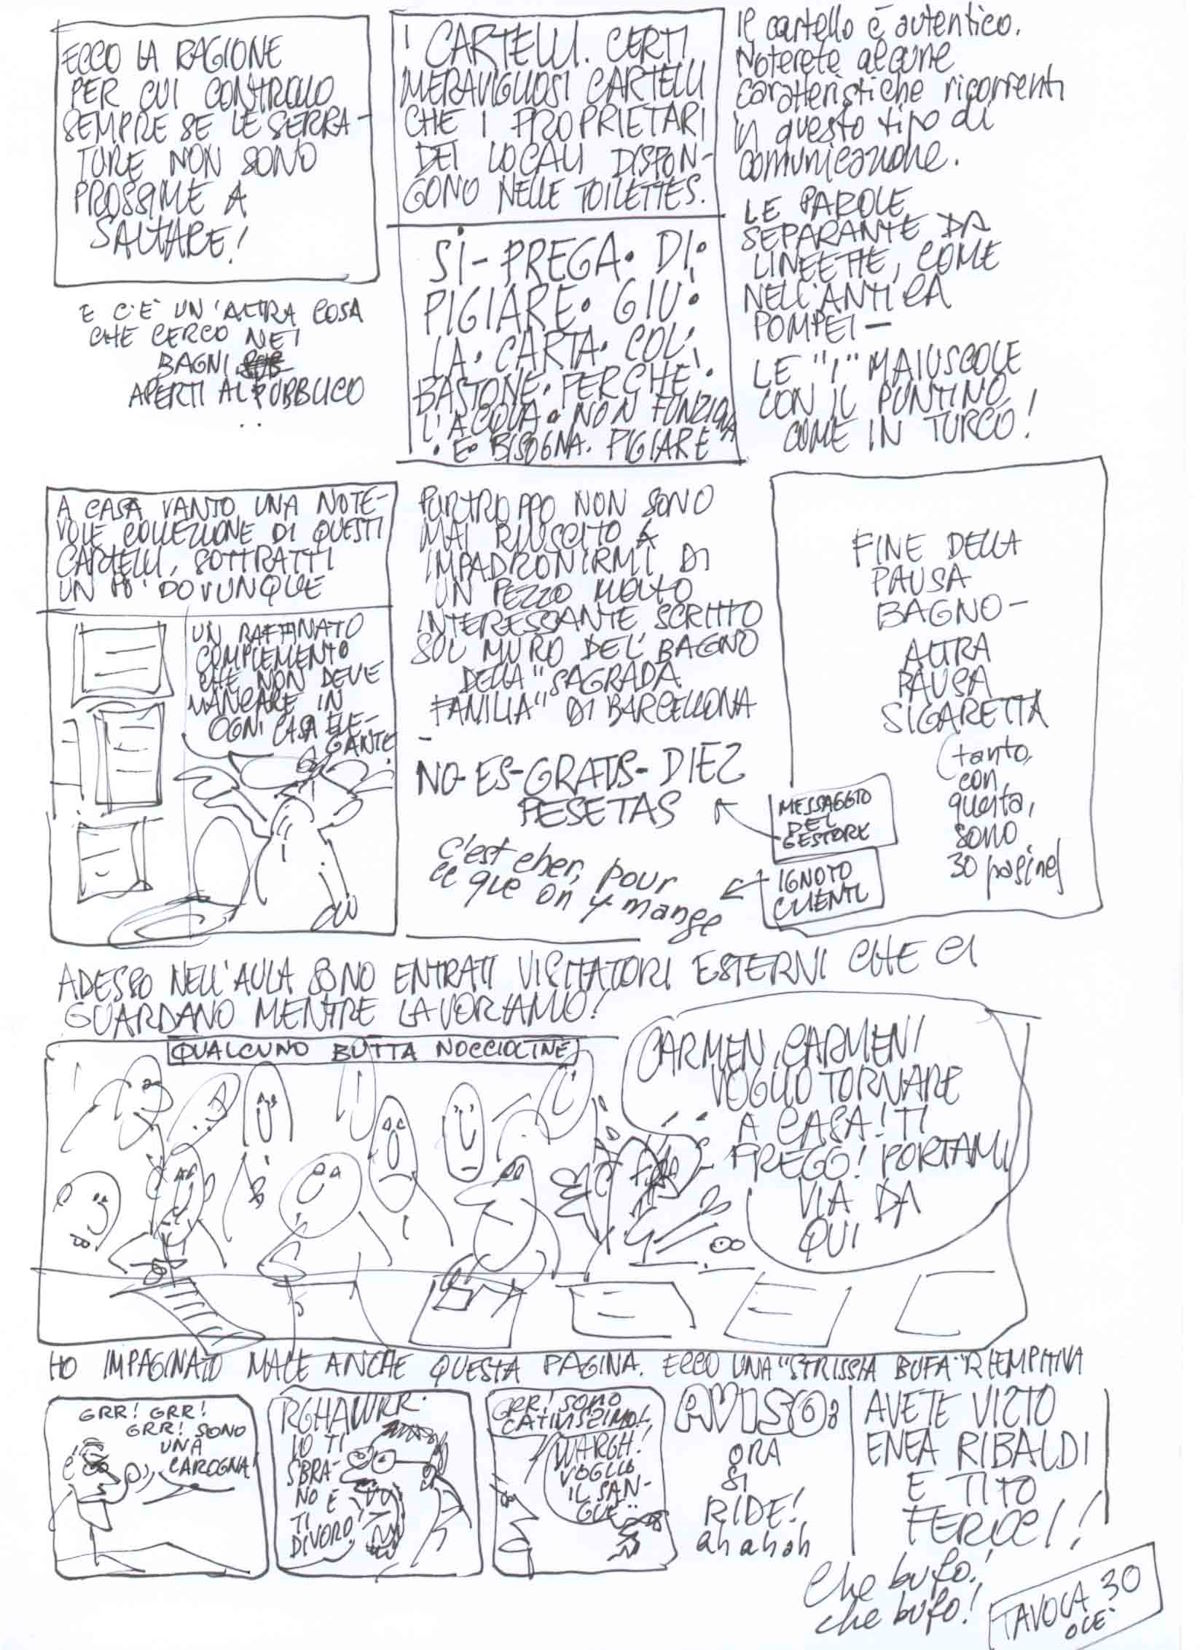 ECCO LA RAGIONE
PER CUI CONTROLLO
SEMPRE SE LE SERRA-
TURE NON SONO
PROSSIME A
SALTARE!
E C'È UN'ALTRA COSA
CHE CERCO NEI
BAGNI
APERTI AL PUBBLICO
..
I CARTELLI. CERTI
MERAVIGLIOSI CARTELLI
CHE I PROPRIETARI
DEI LOCALI DISPON-
GONO NELLE TOILETTES.
SI-PREGA. DI.
PIGIARE. GIU.
LA. CARTA. COL.
BASTONE. PERCHE.
L'ACQUA. NON FUNZIONA
. E. BISOGNA. PIGIARE
Il cartello è autentico.
Noterete alcune
caratteristiche ricorrenti
in questo tipo di
comunicazione.
LE PAROLE
SEPARANTE DA
LINEETTE, COME
NELL'ANTICA
POMPEI-
LE "I" MAIUSCOLE
CON IL PUNTINO
COME IN TURCO!
A CASA VANTO UNA NOTE-
VOLE COLLEZIONE DI QUESTI
CARTELLI, SOTTRATTI
UN PO' DOVUNQUE
UN RAFFINATO
COMPLEMENTO
CHE NON DEVE
MANCARE IN
OGNI CASA ELE-
GANTE
PURTROPPO NON SONO
MAI RIUSCITO A
IMPADRONIRMI DI
UN PEZZO MOLTO
INTERESSANTE SCRITTO
SUL MURO DEL BAGNO
DELLA "SAGRADA
FAMILIA" DI BARCELLONA
-
NO-ES-GRATIS-DIEZ
PESETAS
c'est cher, pour
ce que on y mange
MESSAGGIO
DEL
GESTORE
IGNOTO
CLIENTE
FINE DELLA
PAUSA
BAGNO-
ALTRA
PAUSA
SIGARETTA
(tanto,
con
questa,
sono
30 pagine)
ADESSO NELL'AULA SONO ENTRATI VISITATORI ESTERNI CHE CI
GUARDANO MENTRE LAVORIAMO!
QUALCUNO BUTTA NOCCIOLINE
CARMEN, CARMEN!
VOGLIO TORNARE
A CASA! TI
PREGO! PORTAMI
VIA DA
QUI
HO IMPAGINATO MALE ANCHE QUESTA PAGINA. ECCO UNA "STRISSIA BUFA" RIEMPITIVA
GRR! GRR!
GRR! SONO
UNA
CAROGNA!
RGHAWRR.
IO TI
SBRA-
NO E
TI
DIVORO!
GRR! SONO
CATIVISSIMO!
WARGH!
VOGLIO
IL SAN-
GUE..
AVISO:
ORA
SI
RIDE!
ah ah ah
AVETE VISTO
ENEA RIBALDI
E TITO
FEROCI!
Che bufo!
che bufo!
TAVOLA 30
OLÈ